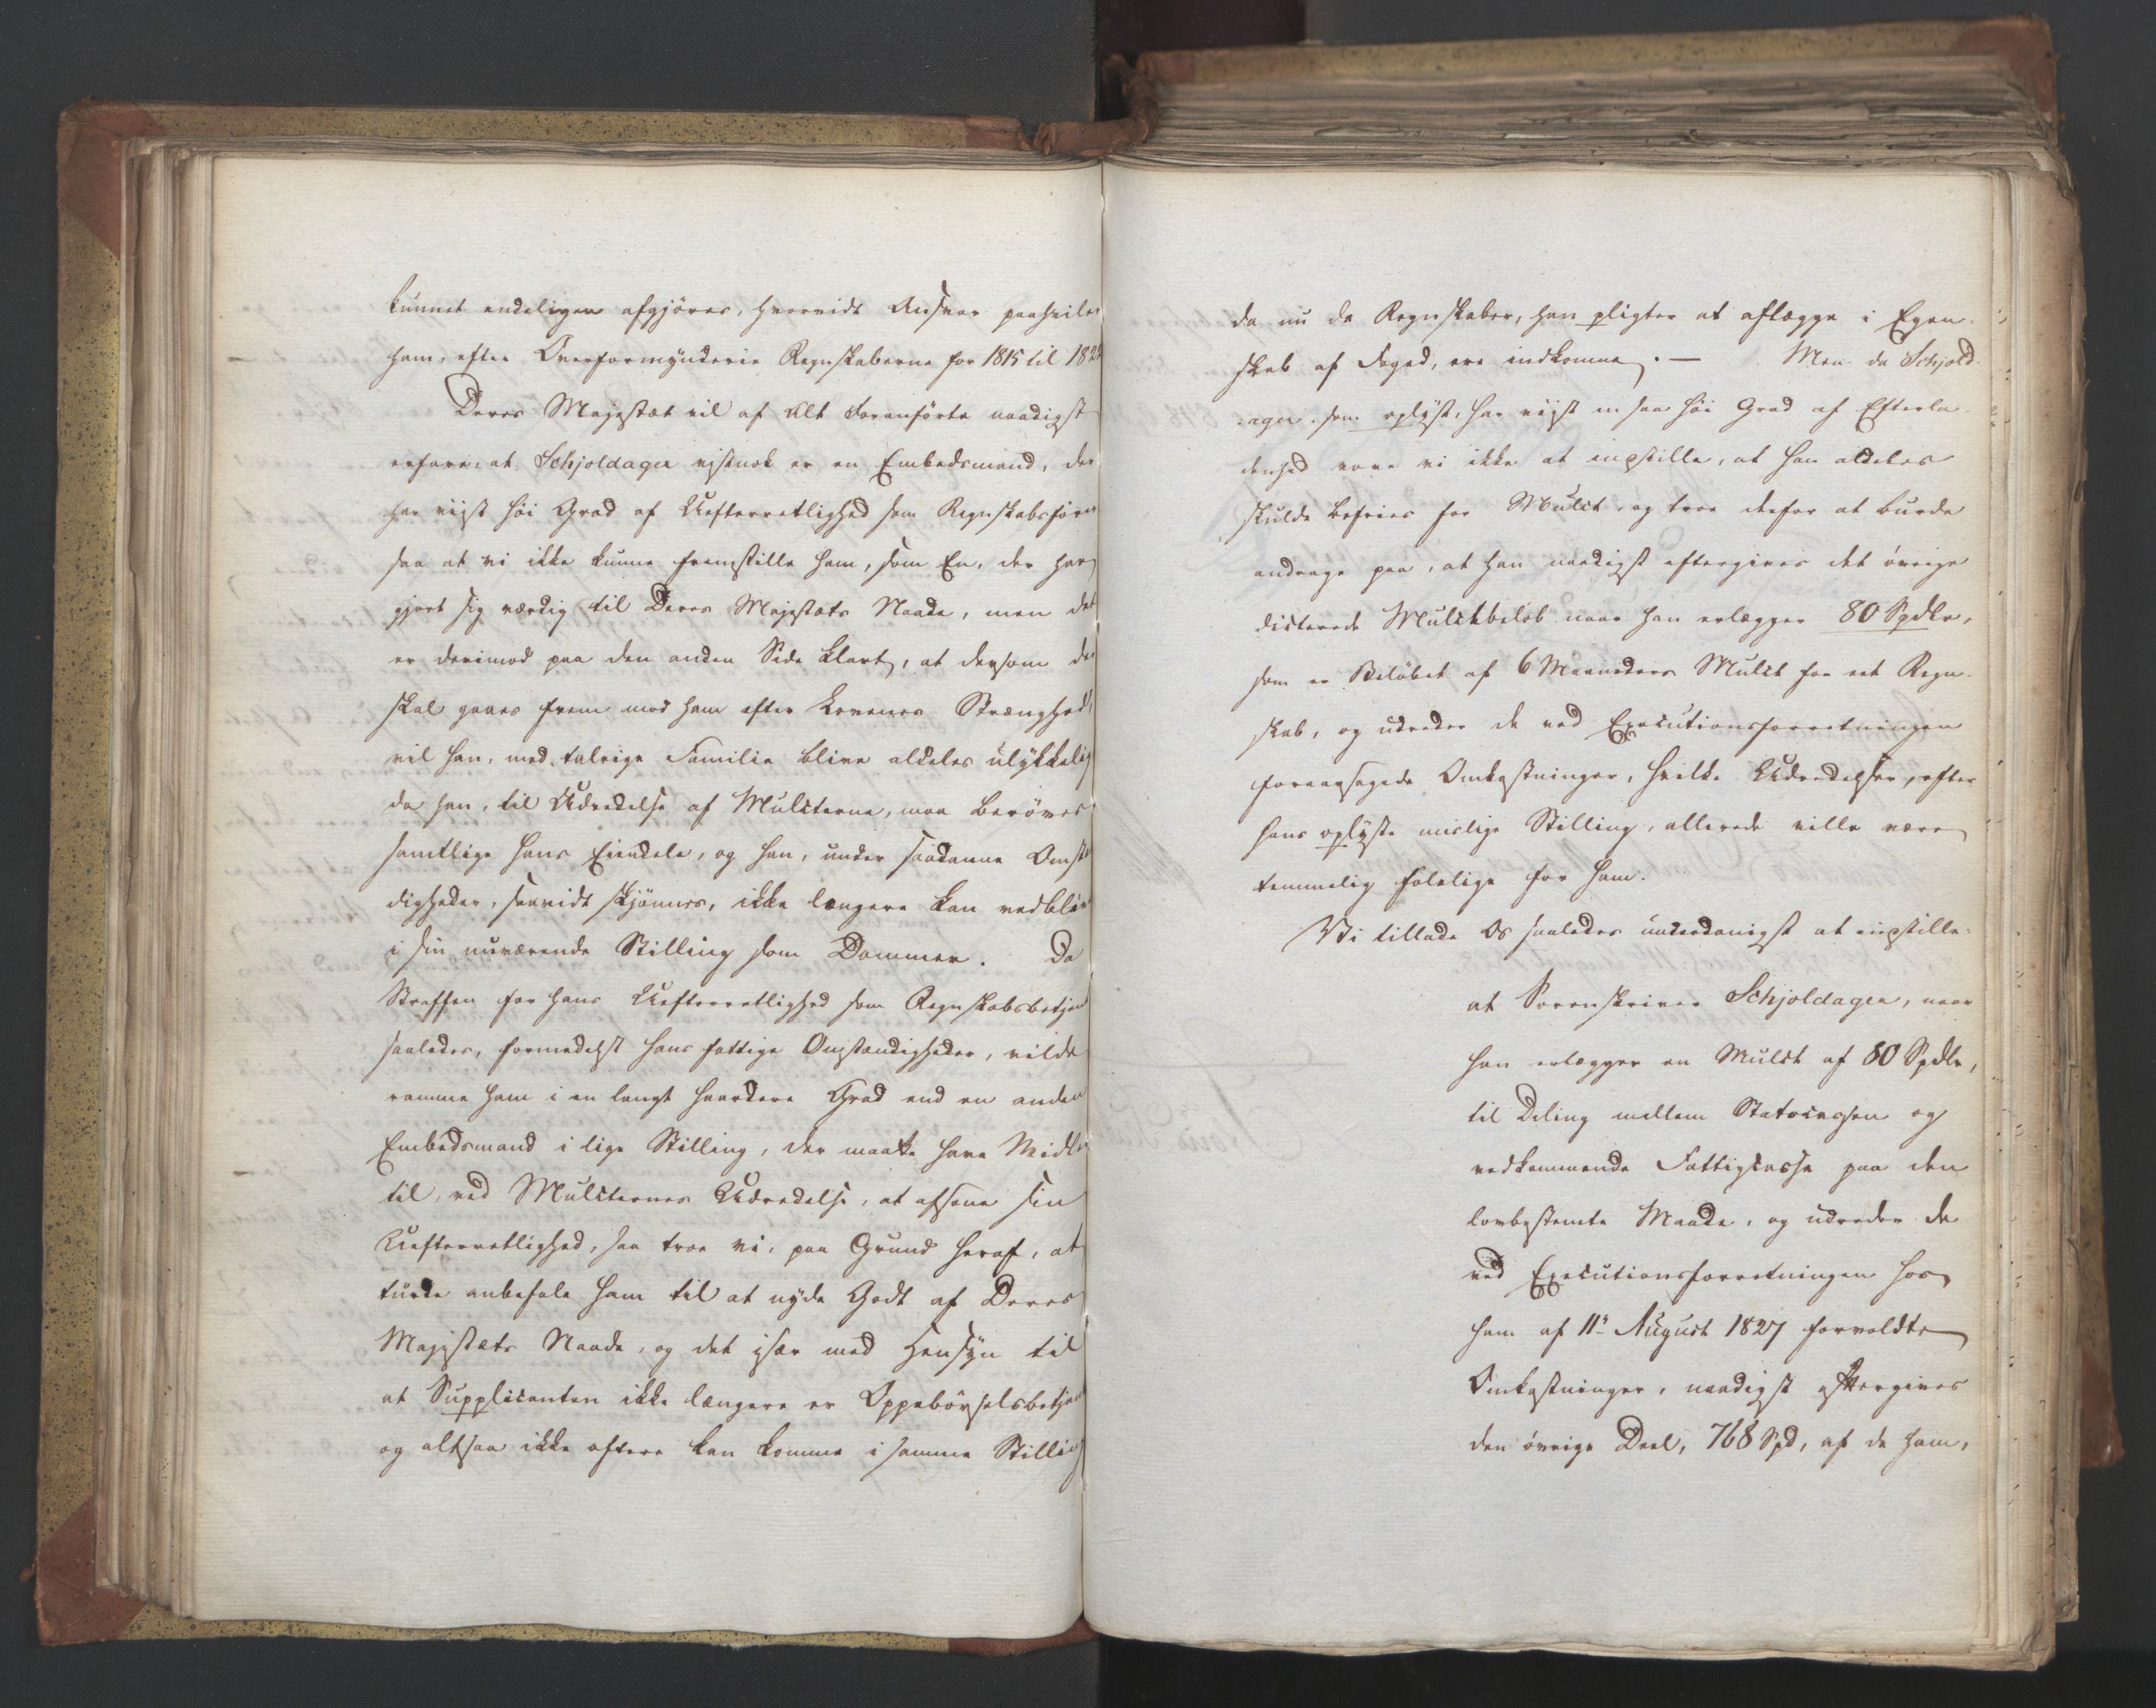 kunnet endeligen afgjöres, hvorvidt Ansvar paahviler
ham, efter Overformynderie Regnskaberne for 1815 til 182
Deres Majestæt vil af Alt Foranförte naadigst
erfare, at Schjoldager vistnok er en Embedsmand, der
har viist höi Grad af Uefterretlighed som Regnskabsförer
saa at vi ikke kunne fremstille ham, som En, der har
gjort sig værdig til Deres Majestæts Naade, men det
er derimod paa den anden Side klart, at dersom der
skal gaaes frem mod ham efter Lovenes Strænghed,
vil han, med talrige Familie blive aldeles ulykkelig
da han, til Udredelse af Mulcterne, maa beröves
samtlige hans Eiendele, og han, under saadanne Omstæn
digheder, saavidt skjönnes, ikke længere kan vedblive
i sin nuværende Stilling som Dommer. Da
Straffen for hans Uefterretlighed som Regnskabsbetjent
saaledes, formedelst hans fattige Omstændigheder, vilde
ramme ham i en langt haardere Grad end en anden
Embedsmand i lige Stilling, der maatte have Midler
til, ved Mulcternes Udredelse, at afsone sin
Uefterretlighed, saa troe vi, paa Grund heraf, at
turde anbefale ham til at nyde Godt af Deres
Majestæts Naade, og det især med Hensyn til
at Supplicanten ikke længere er Oppebörselsbetjent
og altsaa ikke oftere kan komme i samme Stilling
da nu de Regnskaber, han pligter at aflægge i Egen-
skab af Foged, ere indkomne. — Men da Schjold-
ager som oplyst, har viist en saa höi Grad af Efterla-
denhed vove vi ikke at indstille, at han aldeles
skulde befries for Mulct, og troe derfor at burde
andrage paa, at han naadigst eftergives det övrige
dicterede Mulctbelöb naar han erlægger 80 Spdlr,
som er Belöbet af 6 Maaneders Mulct for eet Regn-
skab, og udreder de ved Executionsforretningen
foraarsagede Omkostninger, hvilke Udredelser, efter
hans oplyste mislige Stilling, allerede ville være
temmelig fölelige for ham.
Vi tillade Os saaledes underdanigst at indstille:
at Sorenskriver Schjoldager, naar
han erlægger en Mulct af 80 Spdlr,
til Deling mellem Statscassen og
vedkommende Fattigcasse paa den
lovbestemte Maade, og udreder de
ved Executionsforretningen hos
ham af 11te August 1827 forvoldte
Omkostninger, naadigst eftergives
den övrige Deel, 768 Spd, af de ham,